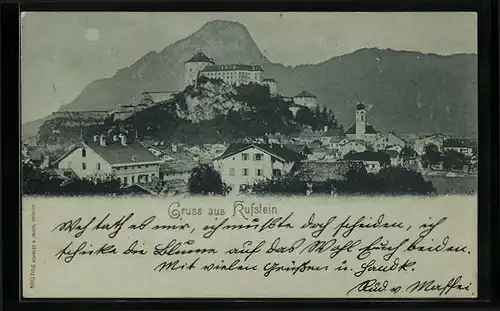 Gruss aus Kufstein
Weh That es mir, ich mußte doch scheiden, ich
schicke die Blume auf das Wohl Euch beiden.
Mit vielen Grüßen u. Handk.
Rud. v. Maffei